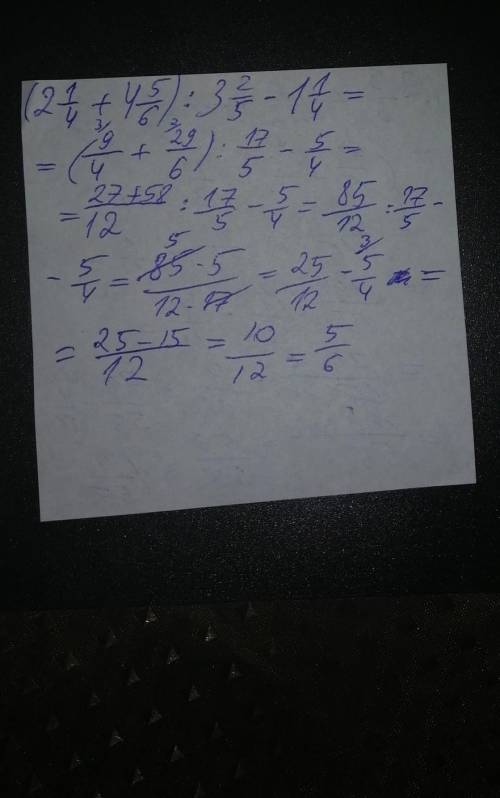 (2 1/4 + 4 5/6) : 3 2/5 - 1 1/4 =
= (9/4 + 29/6) : 17/5 - 5/4 =
= 27+58/12 : 17/5 - 5/4 = 85/12 : 17/5 -
- 5/4 = 85·5/12·17 = 25/12 - 5/4 =
= 25-15/12 = 10/12 = 5/6